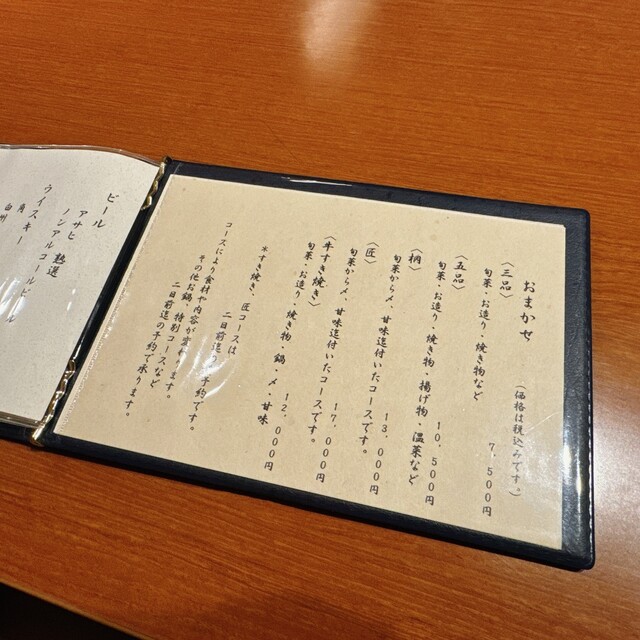 おまかせ
(価格は税込みです。)
〈三品〉
旬菜・お造り・焼き物など
7,500円
〈五品〉
旬菜・お造り・焼き物・揚げ物・温菜など
10,500円
〈柄〉
旬菜から〆、甘味迄付いたコースです。
13,000円
〈匠〉
旬菜から〆、甘味迄付いたコースです。
17,000円
〈牛すき焼き〉
旬菜・お造り・焼き物・鍋・〆・甘味
12,000円
*すき焼き、匠コースは
二日前迄の予約です。
コースにより食材や内容が変わります。
その他お鍋、特別コースなど
二日前迄の予約で承ります。
ビール
アサヒ 熟選
ノンアルコールビール
ウイスキー
角
白州